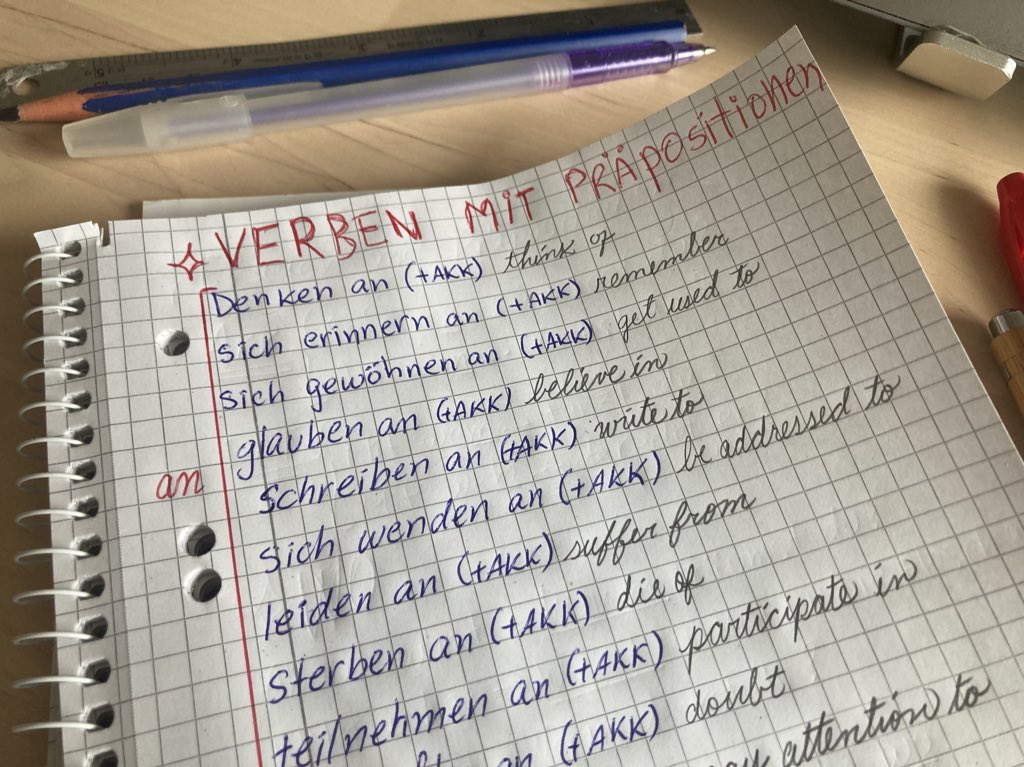 VERBEN MIT PRÄPOSITIONEN
Denken an (+AKK) think of
sich erinnern an (+AKK) remember
sich gewöhnen an (+AKK) get used to
glauben an (+AKK) believe in
schreiben an (+AKK) write to
an
sich wenden an (+AKK) be addressed to
leiden an (+AKK) suffer from
sterben an (+AKK) die of
teilnehmen an (+AKK) participate in
an (+AKK) doubt
attention to